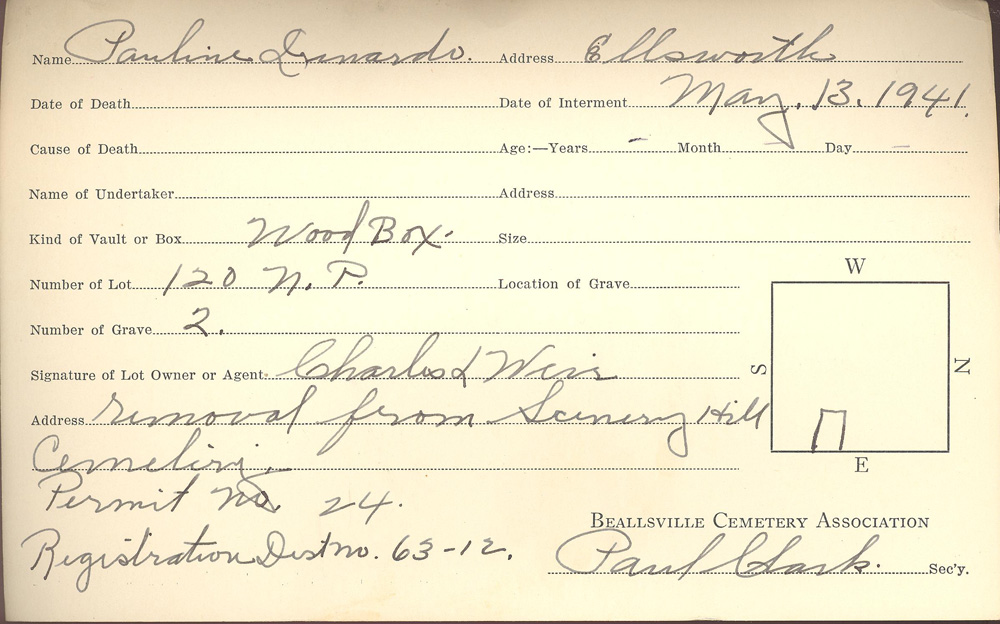 Name Pauline Lunardo. Address Ellsworth
Date of Death Date of Interment May. 13. 1941.
Cause of Death Age:—Years - Month Day -
Name of Undertaker Address
Kind of Vault or Box Wood Box. Size
Number of Lot 120 N. P. Location of Grave
Number of Grave 2.
Signature of Lot Owner or Agent Charles L Weir
Address removal from Scenery Hill
Cemetery.
Permit No. 24.
Registration Dist no. 63-12.
W
S
N
E
BEALLSVILLE CEMETERY ASSOCIATION
Paul Clark. Sec'y.